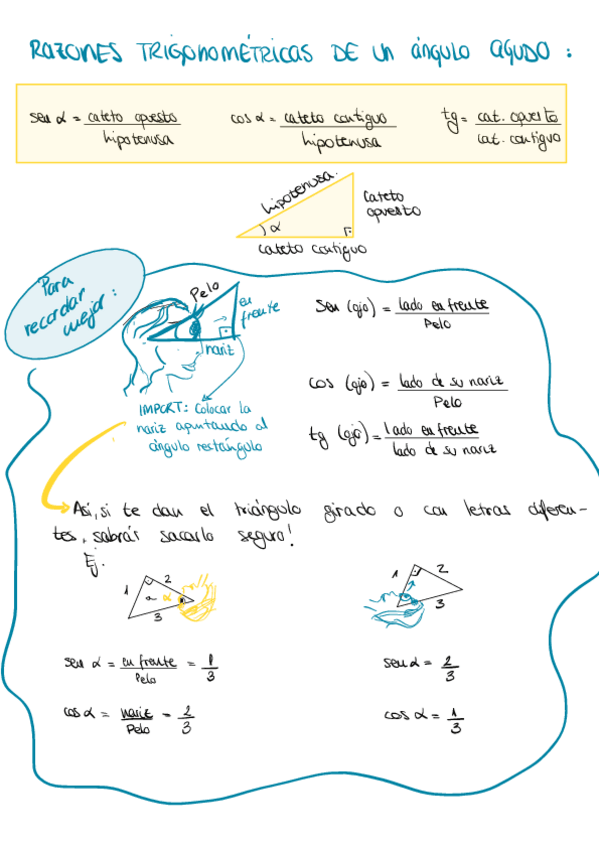 RAZONES TRIGONOMÉTRICAS DE UN ÁNGULO AGUDO :
sen α = cateto opuesto / hipotenusa cos α = cateto contiguo / hipotenusa tg = cat. opuesto / cat. contiguo
hipotenusa.
cateto
opuesto
α
cateto contiguo
Para
recordar
mejor :
Pelo
en
frente
nariz
IMPORT: Colocar la
nariz apuntando al
ángulo rectángulo
sen (ojo) = lado en frente / Pelo
cos (ojo) = lado de su nariz / Pelo
tg (ojo) = lado en frente / lado de su nariz
Así, si te dan el triángulo girado o con letras diferen-
tes, sabrás sacarlo seguro!
Ej.
1 2 α 3
1 2 3
sen α = en frente / Pelo = 1/3
cos α = nariz / Pelo = 2/3
sen α = 2/3
cos α = 1/3